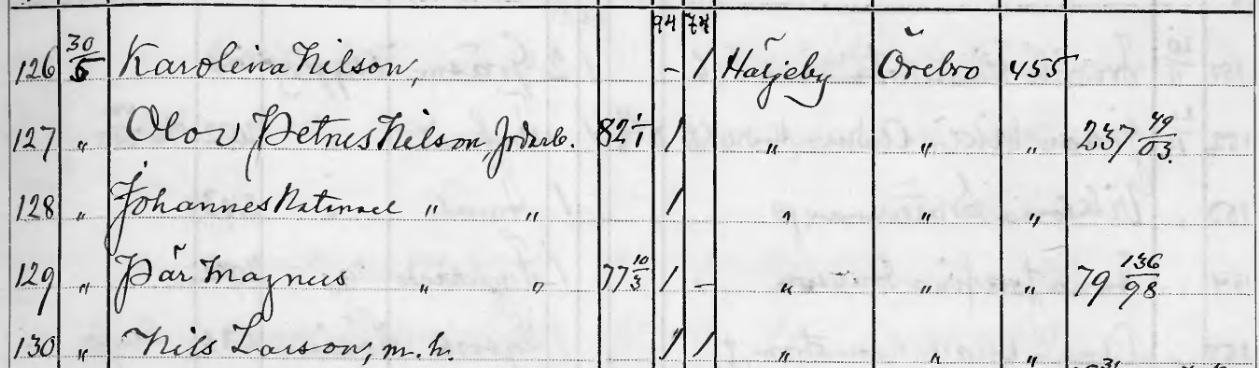 94 74
126 30/5 Karolina Nilson, - / Härjeby Örebro 455
127 " Olov Petrus Nilson, Jrdarb. 82 1/1 / " " " 237 49/03.
128 " Johannes Natanael " " / " " "
129 " Pär Magnus " " 77 10/3 / - " " " 79 136/98
130 " Nils Larson, m. h. / / " " "